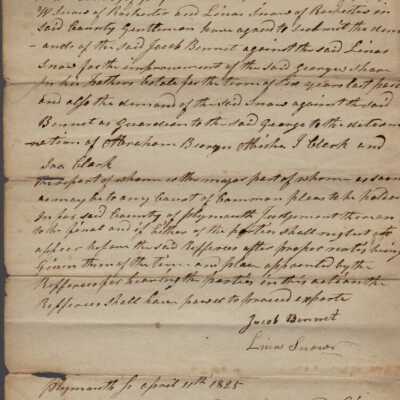 Wilson of Rochester and Linas Snow of Rochester in
said County Gentleman have agreed to submit the dem
- ands of the said Jacob Bennet against the said Linas
Snow for the improvement of the said George
in his fathers Estate for the term of Six years last past
and also the demand of the said Snow against the said
Bennet as Guardian to the said George to the determ
nation of Abraham Abisha T Clark and
Isa Clark
the report of whom or the major part of whom as soon
as may be to any Court of Common pleas to be holden
in for said County of Plymouth Judgement thereon
to be final and if Either of the parties shall neglect to
appear before the said Refferees after proper notice being
Given them of the time and place appointed by the
Refferees for hearing the parties in this action the
Refferees shall have power to proceed exparte
Jacob Bennet
Linas Snow
Plymouth Ss April 11th 1825